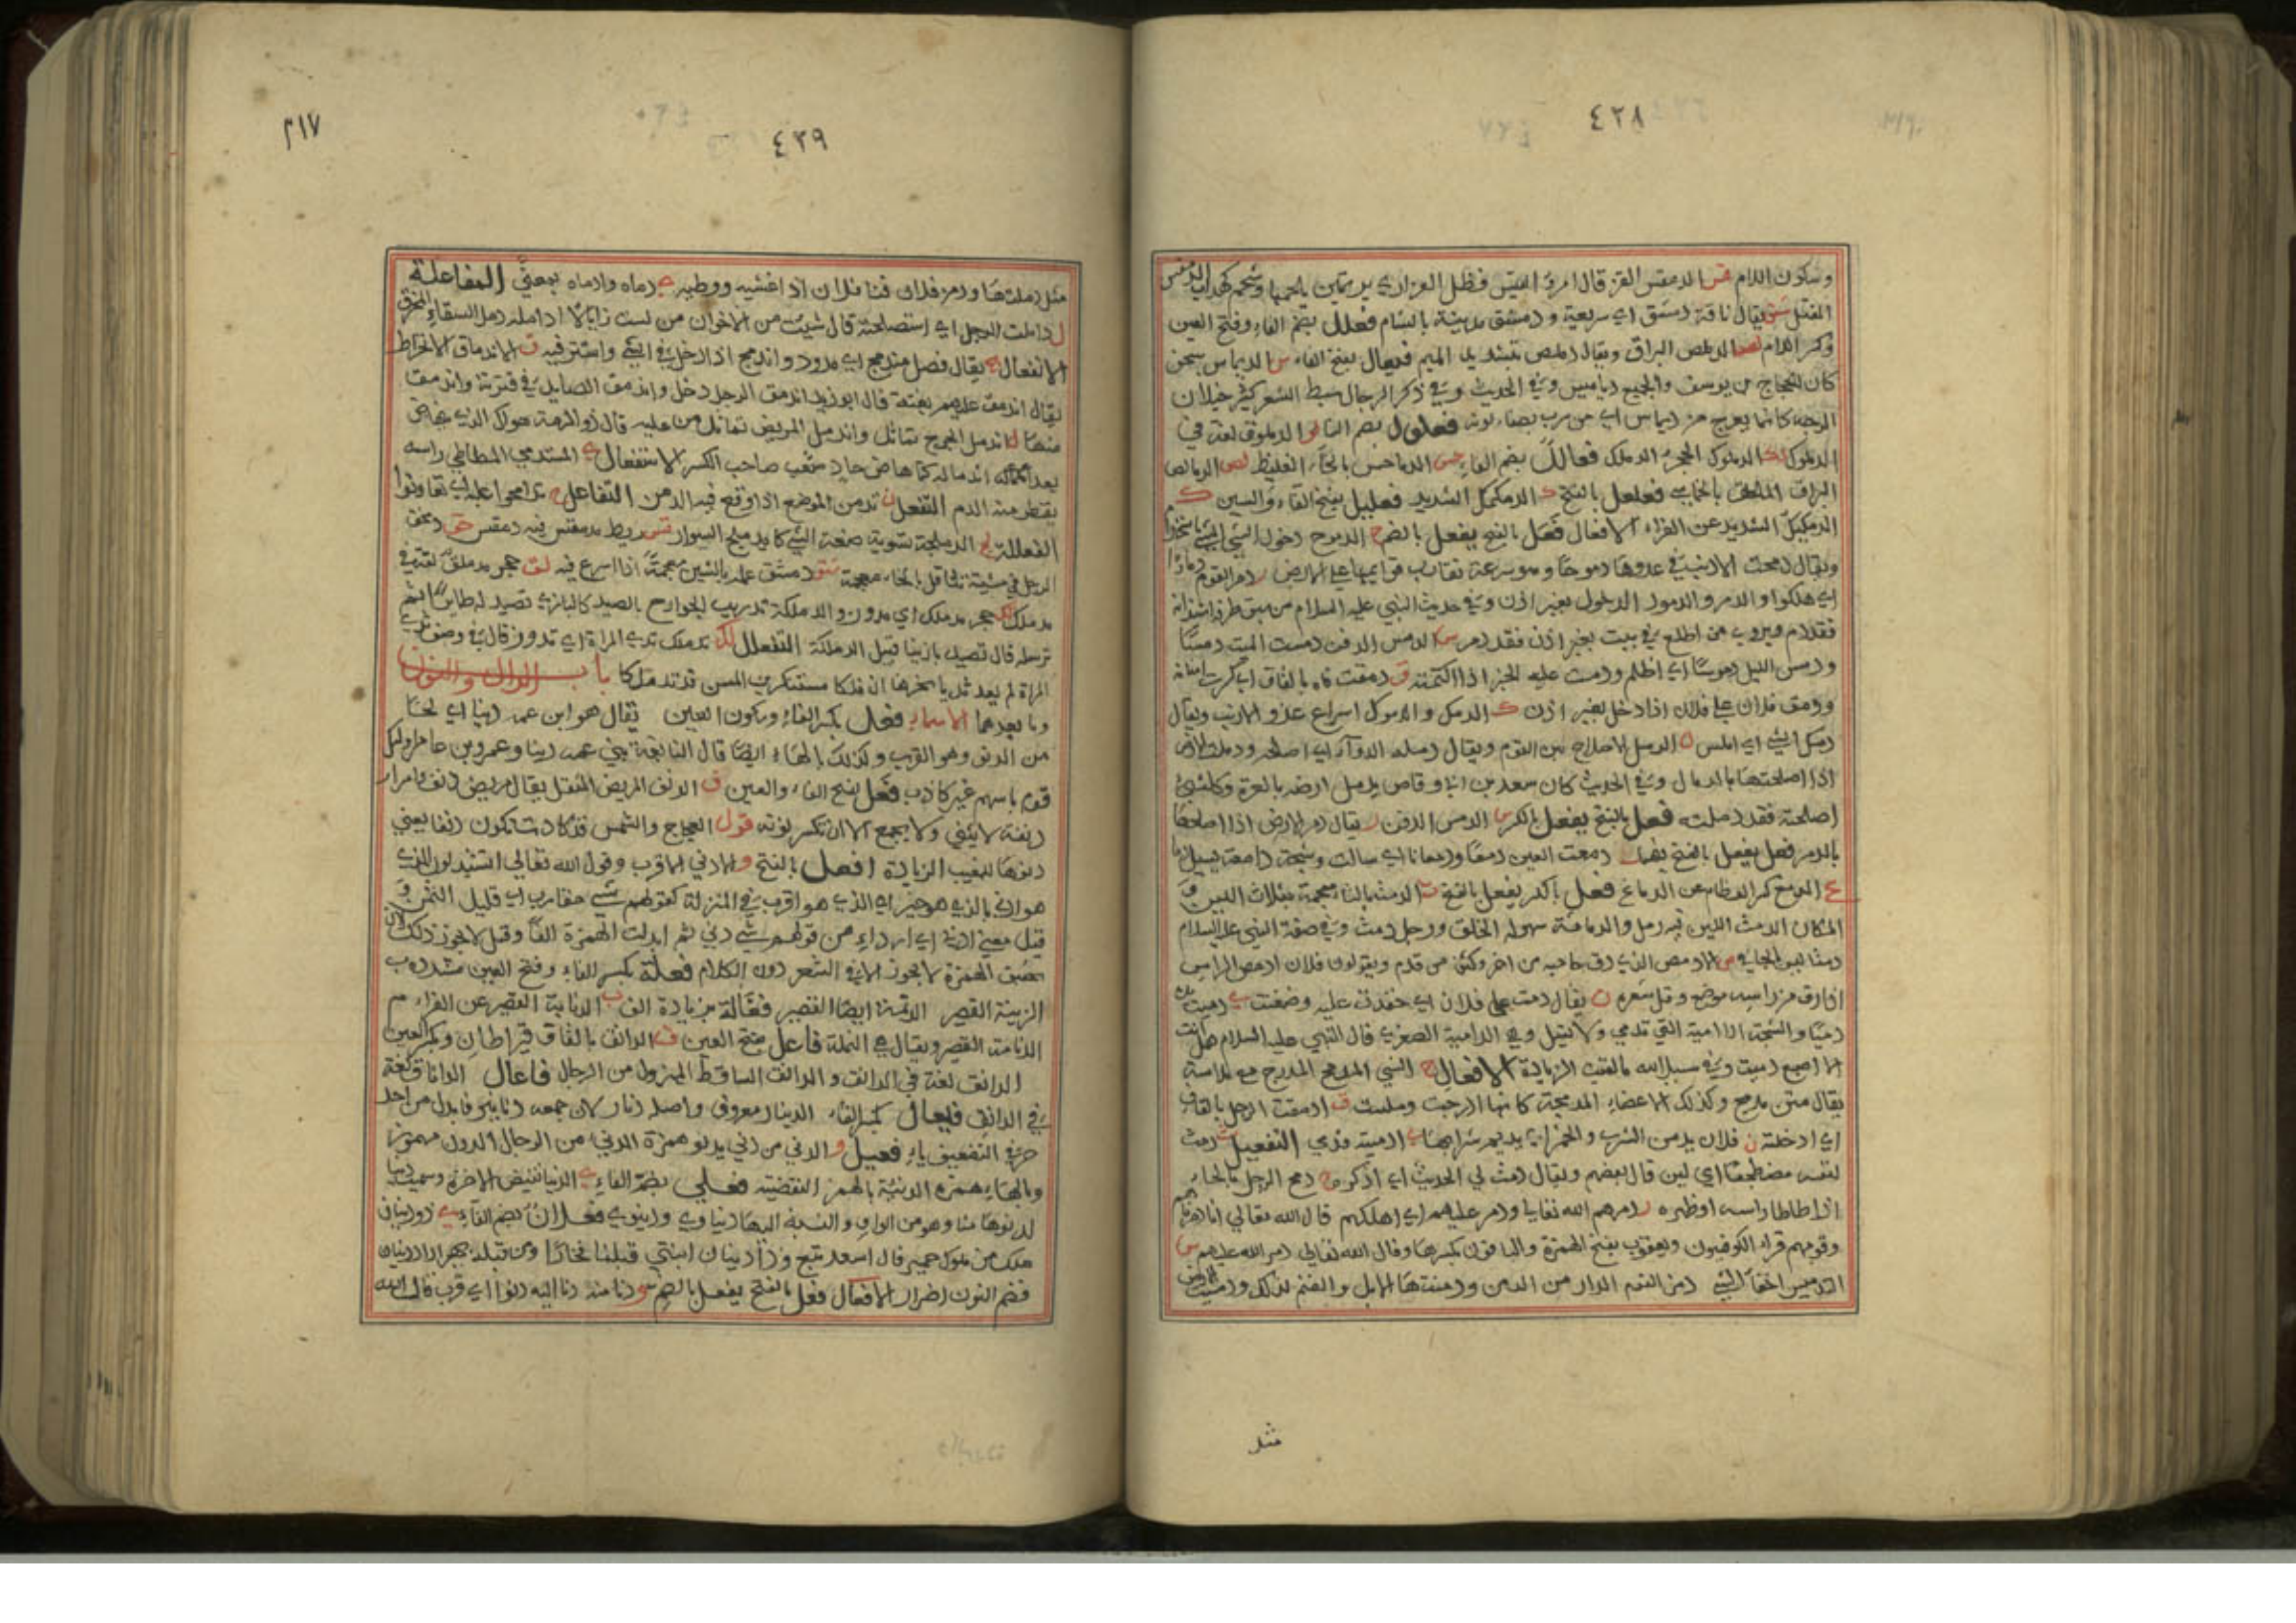 ٤٢٨
وسكون اللام قس الدمقس القز قال امرؤ القيس فظل العذارى يرتمين بلحمها وشحم كهداب الدمقس
المفتل شق يقال ناقة دمشق اي سريعة ودمشق مدينة بالشام فعلل بضم الفاء وفتح العين
وكسر اللام لص الدلمص البراق ويقال دملص بتشديد الميم فيعال بفتح الفاء س الديماس سجن
كان للحجاج بن يوسف والجميع دياميس وفي الحديث وفي ذكر الرجال سبط الشعر كثير خيلان
الوجه كانما يخرج من ديماس اي من سرب بصفاء لونه فعلول بضم الفا لو الدملوق لغة في
الدملوك لك الدملوك الحجر الدملك فعالل بضم الفاء حس الدماحس بالحاء الغليظ لص الدمالص
البراق فعلعل بالفتح ك الدمكمك الشديد فعليل بفتح الفاء والسين ك
الدمكيك الشديد عن الفراء الافعال فعل بالفتح يفعل بالضم ج الدموج دخول الشي في الشي
ويقال دمجت الارنب في عدوها دموجا وهو سرعة تقارب قوائمها على الارض ر دمر القوم دمارا
اي هلكوا والدمر والدمور الدخول بغير اذن وفي حديث النبي عليه السلام من سبق طرفه استئذانه
فقد دمر ويروى من اطلع في بيت بغير اذن فقد دمر س الدمس الدفن دمست الميت دمسا
ودمس الليل دموسا اي اظلم ودمست عليه الخبر اذا اكتمته ق دمقت فاه بالقاف اي كسرت اسنانه
ودمق فلان على فلان اذا دخل بغير اذن ك الدمك والدموك اسراع عدو الارنب ويقال
دمك الشي اي املس ل الدمل الاصلاح بين القوم ويقال دمله الدواء اي اصلحه ودملت الارض
اذا اصلحتها بالدمال وفي الحديث كان سعد بن ابي وقاص يدمل ارضه بالعرة وكل شي
اصلحته فقد دملته فعل بالفتح يفعل بالكسر س الدمس الدفن ر يقال دمر الارض اذا اصلحها
بالدمر فعل يفعل بالفتح فيهما دمعت العين دمعا ودمعانا اي سالت وشجة دامعة يسيل دمها
ع الدمغ كسر العظام عن الدماغ فعل بالكسر يفعل بالفتح ث الدمث بالثاء معجمة بثلاث اللين و
المكان الدمث اللين فيه رمل والدماثة سهولة الخلق ورجل دمث وفي صفة النبي عليه السلام
دمثا ليس بالجافي ص الادمص الذي رق حاجبه من اخر وكثف من قدم ويقولون فلان ادمص الراس
اذا رق من راسه موضع وقل شعره ن يقال دمنت على فلان اي حقدت عليه وضغنت ي دميت يده
دميا والشجة الدامية التي تدمي ولا تسيل وهي الدامية الصغرى قال النبي عليه السلام هل انت
الا اصبع دميت وفي سبيل الله ما لقيت الزيادة الافعال ج الشي المدمج المدرج مع ملاسة
يقال متن مدمج وكذلك الاعضاء المدمجة كانها ادرجت وملست ق ادمقت الرجل بالقاف
اي ادخلته ن فلان يدمن الشرب والخمر اي يديم شرابها ي ادميته فدمي التفعيل ث دمث
لنفسه مضطجعا اي لين قال بعضهم ويقال دمث لي الحديث اي اذكره ح دمح الرجل بالحاء
اذا طاطا راسه او ظهره ر دمرهم الله تعالى ودمر عليهم اي اهلكهم قال الله تعالى انا دمرناهم
وقومهم قراء الكوفيون ويعقوب بفتح الهمزة والباقون بكسرها وقال الله تعالى دمر الله عليهم س
التدميس اخفا الشي دمن القوم الدار من الدمن ودمنتها الابل والغنم كذلك ودميت
مثل
٢١٧
٤٢٩
مثل دملتها ودمن فلان فنا فلان اذا غشيه ووطيه ي دماه وادماه بمعنى المفاعلة
ل داملت الرجل اي استصلحته قال شنئت من الاخوان من لست زايلا ادامله دمل السقاء المخرق
الانفعال ج يقال فصل مندمج اي مدور واندمج اذا دخل في الشي واستتر فيه ق الاندماق الانخراط
يقال اندمق عليهم بغتة قال ابو زيد اندمق الرجل دخل واندمق الصايد في قترته واندمق
منها ل اندمل الجرح تماثل واندمل المريض تماثل من علته قال ذو الرمة هواك الذي ينهاض
بعد اندماله كما هاض حاد متعب صاحب الكسر الاستفعال ي المستدمي المطاطي راسه
يقطر منه الدم التفعل ن تدمن الموضع اذا وقع فيه الدمن التفاعل ج تدامجوا عليه اي تعاونوا
الفعللة لج الدملجة تسوية صنعة الشي كما يدملج السوار قس ربط مدمقس فيه دمقس حق دمحق
الرجل في مشيته تثاقل بالحاء معجمة شق دمشق عمله بالشين معجمة اذا اسرع فيه لق حجر مدملق لغة في
مدملك لك حجر مدملك اي مدور والدملكة تدريب الجوارح بالصيد كالبازي تصيد له طايرا ثم
ترسله قال تصيد بازينا قبيل الدملكة التفعلل لك تدملك ثدي المراة اي تدور قال في وصف ثدي
المراة لم يعد ثديا نحرها ان فلكا مستنكرين المس قد تدملكا باب الدال والنون
وما بعدهما الاسماء فعل بكسر الفاء وسكون العين يقال هو ابن عمه دنيا اي لحا
من الدنو وهو القرب وكذلك بالهاء ايضا قال النابغة بني عمه دنيا وعمرو بن عامر اولئك
قوم باسهم غير كاذب فعل بفتح الفاء والعين ف الدنف المريض المثقل يقال مريض دنف وامراة
دنفة لا يثنى ولا يجمع الا ان تكسر نونه قول العجاج والشمس قد كادت تكون دنفا يعني
دنوها للمغيب الزيادة افعل بالفتح و الادني الاقرب وقول الله تعالى اتستبدلون الذي
هو ادنى بالذي هو خير اي الذي هو اقرب في المنزلة كقولهم شي مقارب اي قليل الثمن و
قيل معنى ادنى اي ارداء من قولهم شي دني ثم ابدلت الهمزة الفا وقيل لا يجوز ذلك لان
تخفيف الهمزة لا يجوز الا في الشعر دون الكلام فعلة بكسر الفاء وفتح العين مشددة ب
الدنبة القصير الدنمة ايضا القصير فعالة بزيادة الف ب الدنابة القصير عن الفراء م
الدنامة القصير ويقال هي النملة فاعل بفتح العين ق الدانق بالقاف قيراطان وبكسر العين
الدانق لغة في الدانق والدانق الساقط المهزول من الرجال فاعال الداناق لغة
في الدانق فيعال بكسر الفاء الدينار معروف واصله دنار لان جمعه دنانير فابدل من احد
حرفي التضعيف ياء فعيل و الدني من دني يدنو همزة الدنيء من الرجال الدون مهموز
وبالهاء همزه الدنيئة بالهمز النقيضة فعلى بضم الفاء ي الدنيا نقيض الاخرة وسميت دنيا
لدنوها منا وهو من الواو والنسبة اليها دنياوي ودنيوي فعلان بضم الفاء ي ذو دنيان
ملك من ملوك حمير قال اسعد تبع وذا دنيان ابنتي قبلنا فخارا ومن قبله جهرا دنيان
فضم النون اضرار الافعال فعل بالفتح يفعل بالضم و دنا منه دنا اليه دنوا اي قرب قال الله